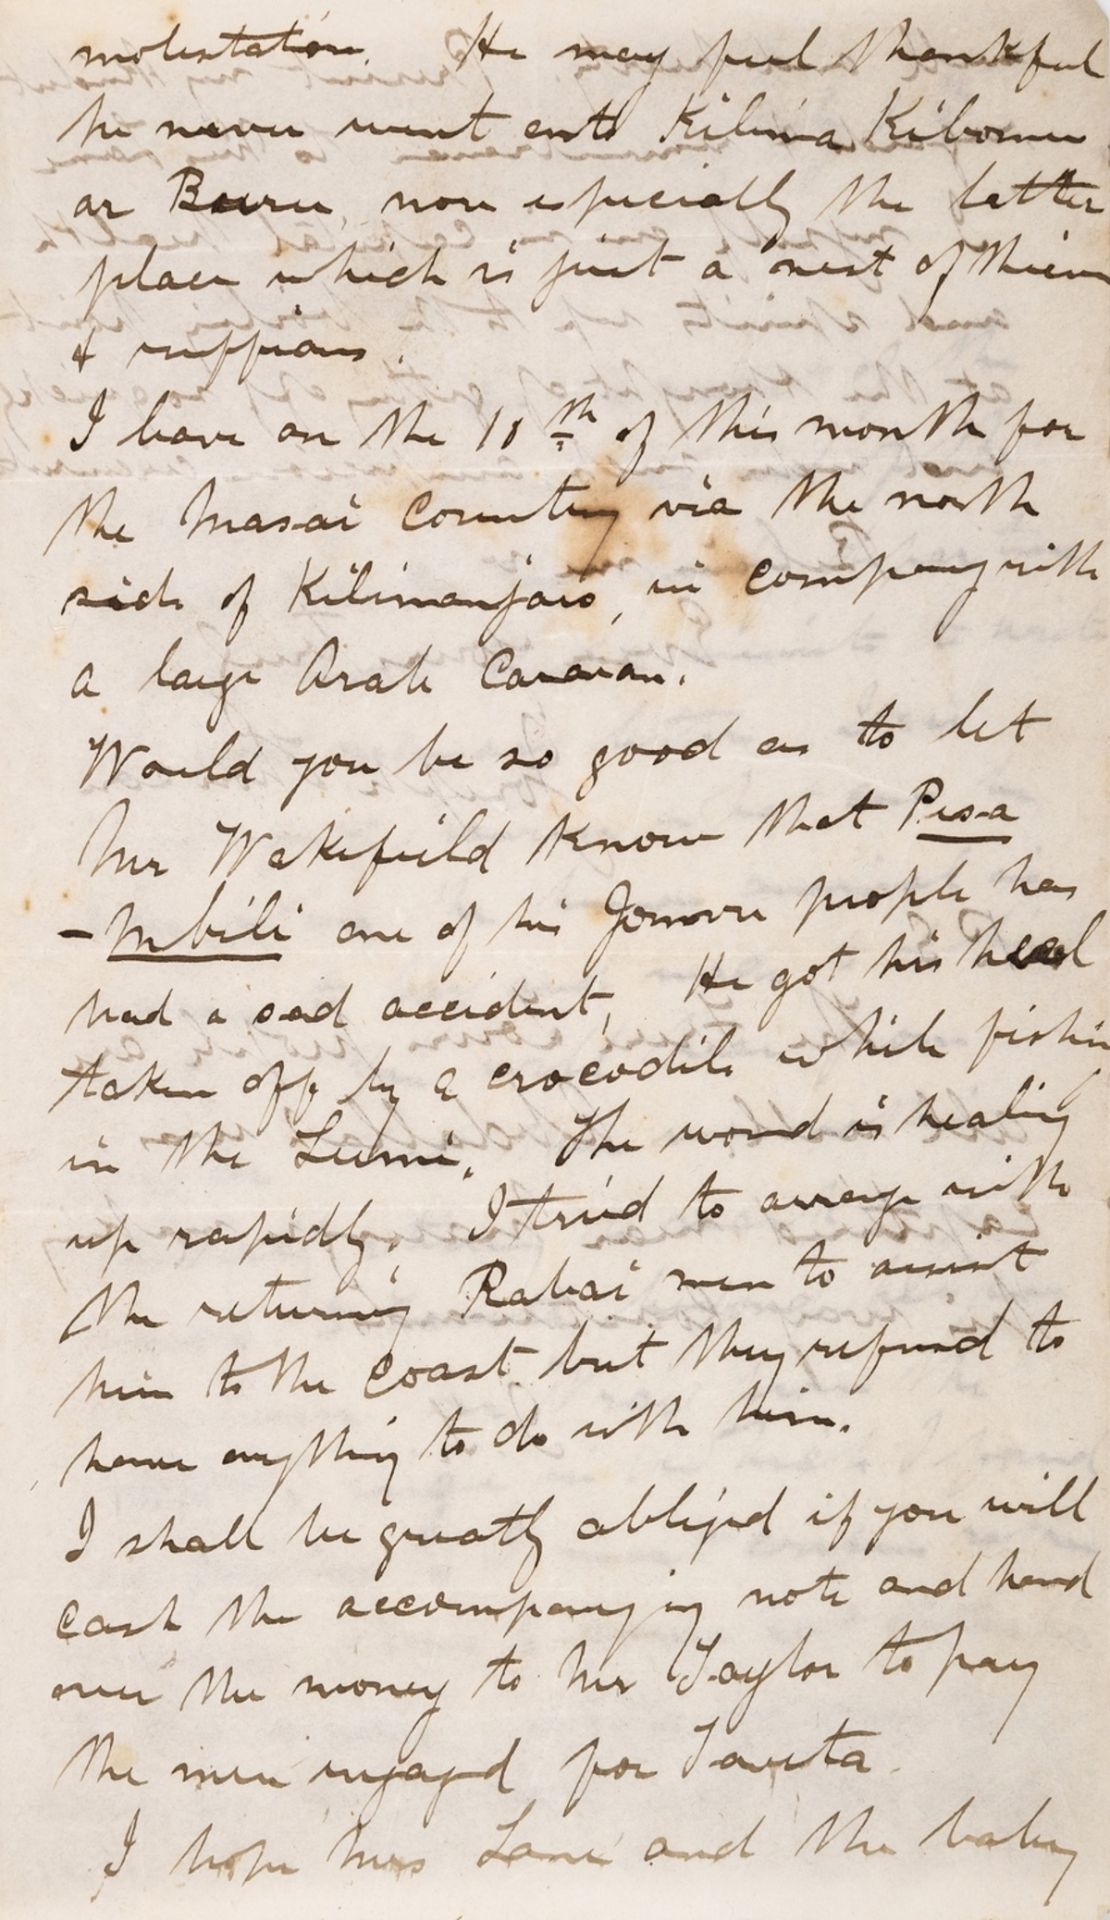 molestation. He may feel thankful
he never went into Kilima Kibomu
or Bura, more especially the latter
place which is just a nest of thieves
& ruffians.
I leave on the 10th of this month for
the Masai Country via the north
side of Kilimanjaro, in company with
a large Arab Caravan.
Would you be so good as to let
Mr Wakefield know that Pesa
-Mbili one of his Jomvu people has
had a sad accident, He got his heel
taken off by a crocodile while fishin
in the Lumi. The wound is healing
up rapidly. I tried to arrange with
the returning Rabai men to assist
him to the coast but they refused to
have anything to do with him.
I shall be greatly obliged if you will
cash the accompanying note and hand
over the money to Mr Taylor to pay
the men engaged for Taveta.
I hope Mrs Lane and the baby